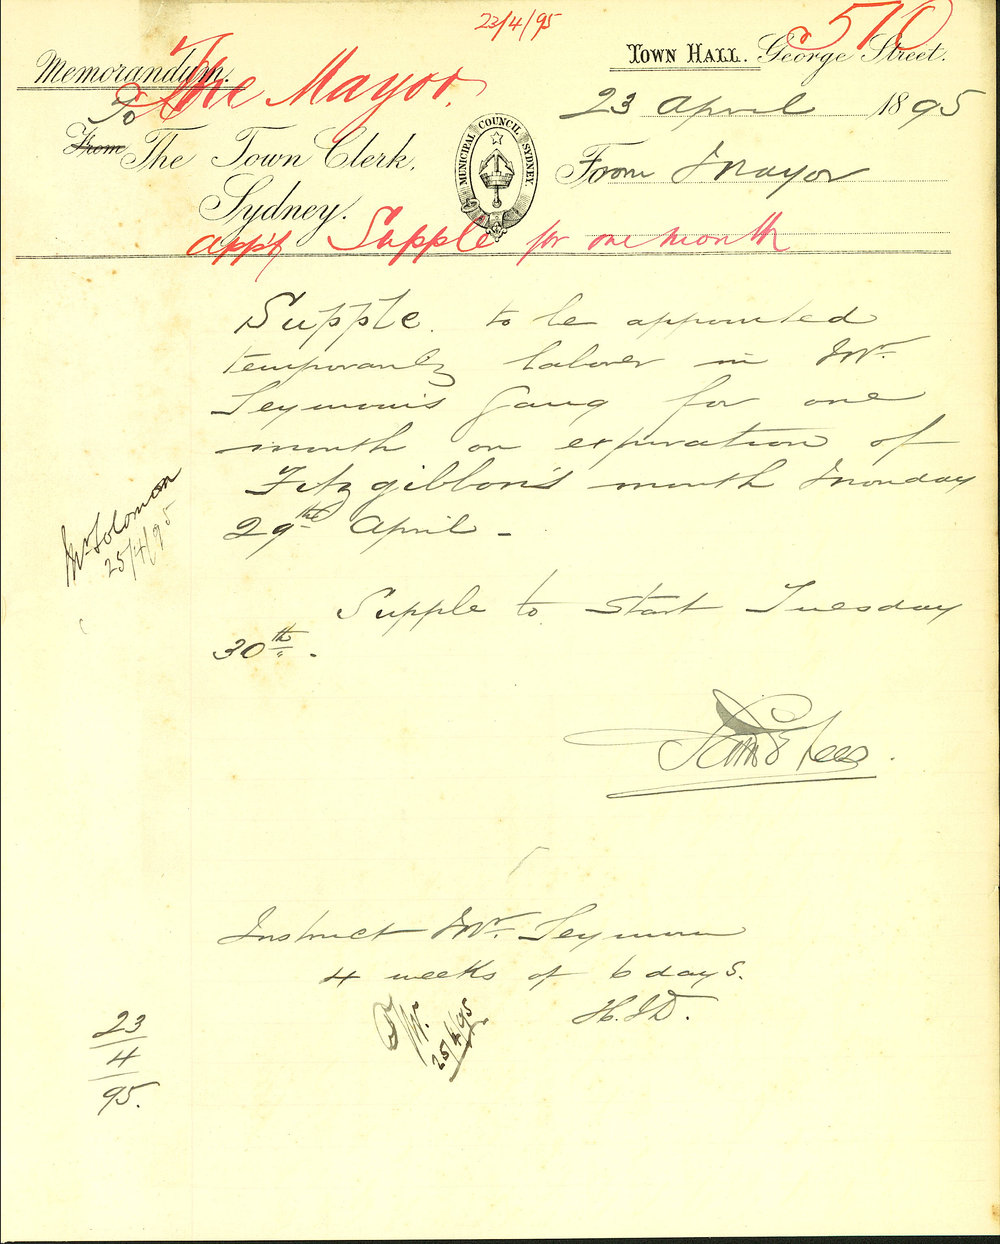 23/4/95
510
Memorandum.
The Mayor.
Town Hall. George Street.
To
23 April 1895
From The Town Clerk,
Sydney.
MUNICIPAL COUNCIL SYDNEY.
From Mayor
Supple for one month
Supple. to be appointed
temporarily laborer in Mr.
Seymour's Gang for one
month on expiration of
Fitzgibbon's month Monday
29th April -
Mr Solomon
25/4/95
Supple to start Tuesday
30th.
Instruct Mr. Seymour
4 weeks of 6 days.
H.J.D.
25/4/95
23
4
95.